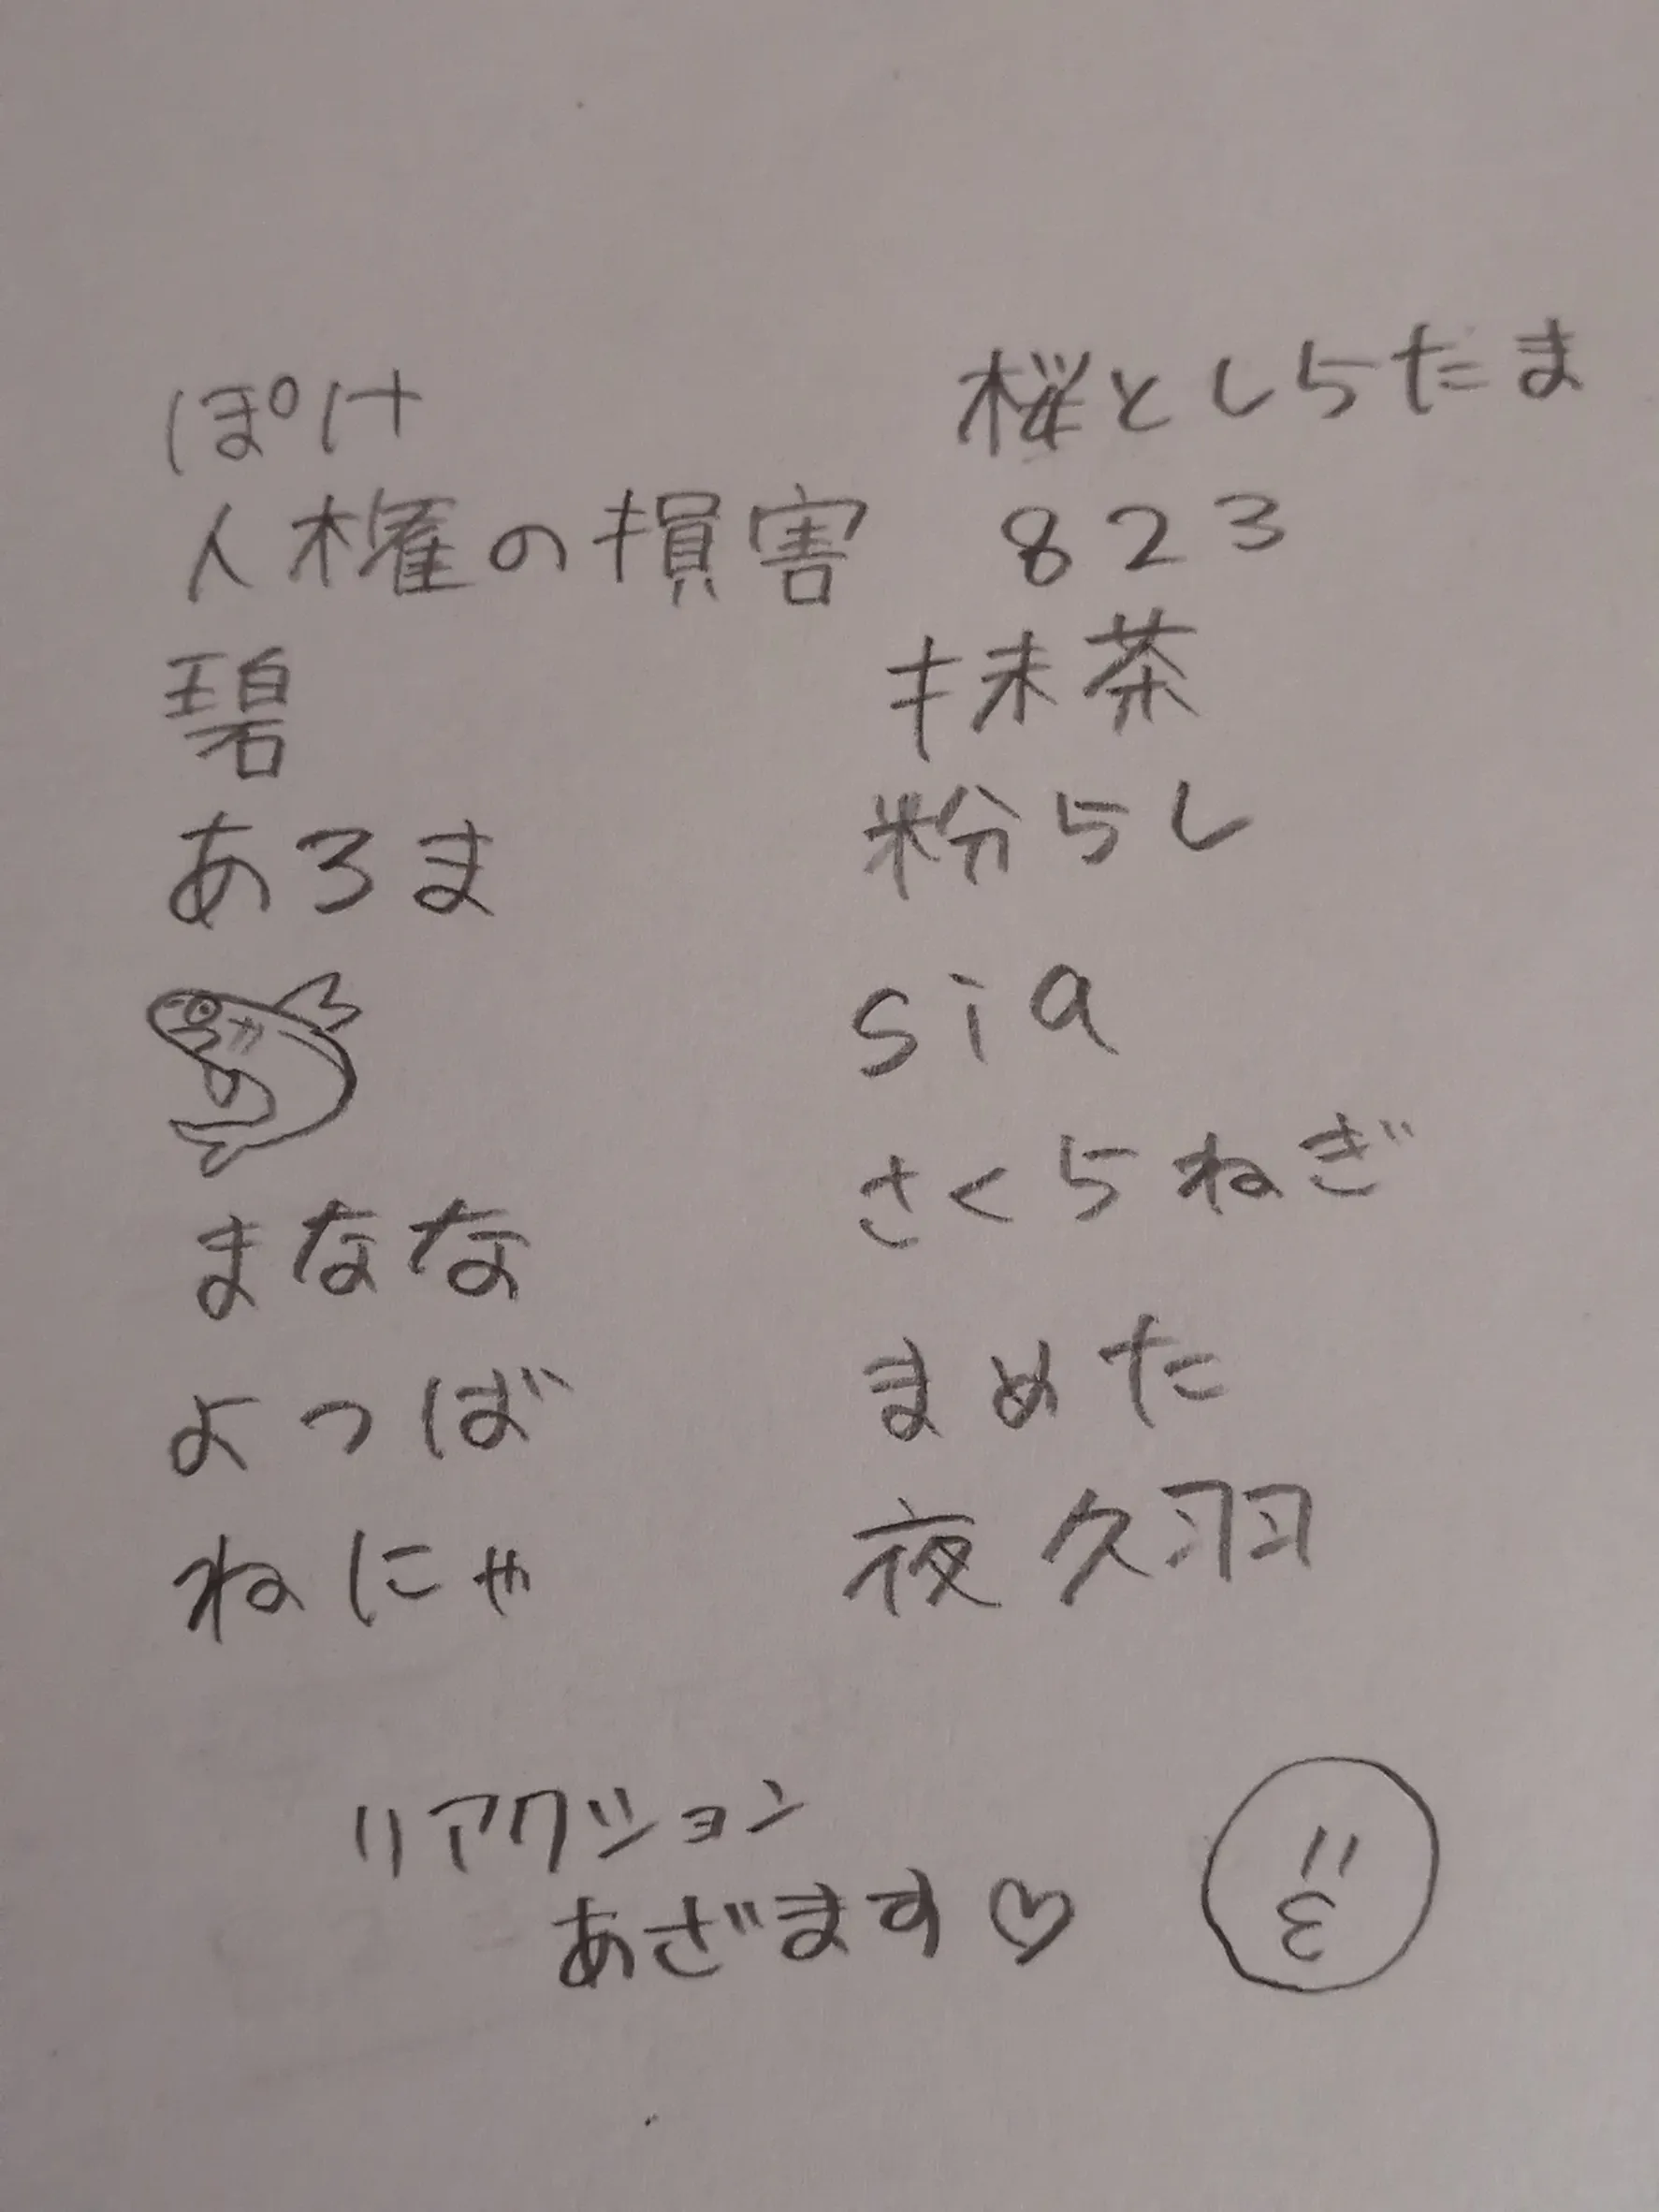 ぽけ
人権の損害
碧
あろま
まなな
よつば
ねにゃ
桜としらたま
823
抹茶
粉らし
sia
さくらねぎ
まめた
夜久羽
リアクション
あざます♡